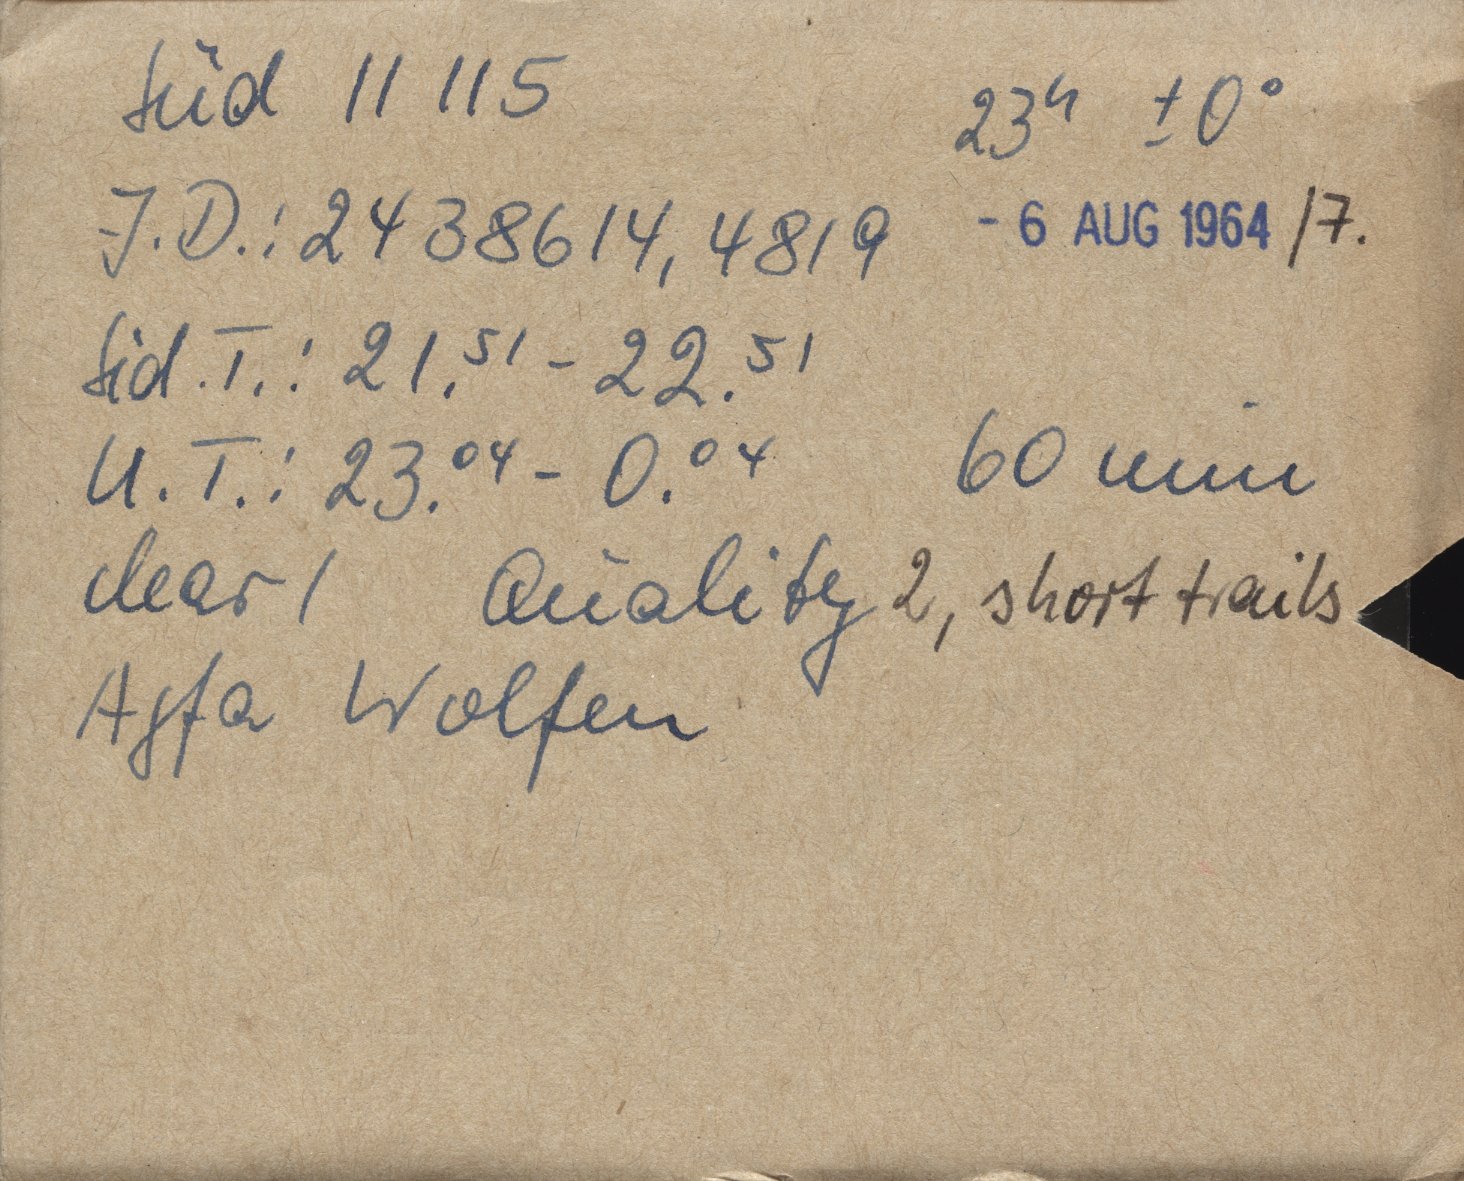 Süd 11 115
23ʰ ±0°
J.D.: 2438614,4819
- 6 AUG 1964 /7.
Sid.T.: 21.⁵¹ - 22.⁵¹
U.T.: 23.⁰⁴ - 0.⁰⁴ 60 min
clear 1 Quality 2, short trails
Agfa Wolfen